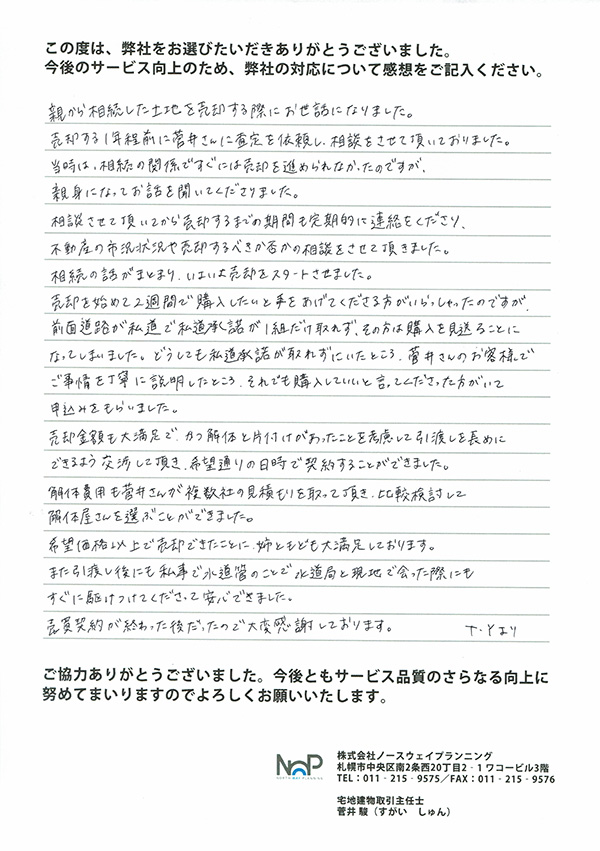 この度は、弊社をお選びたいだきありがとうございました。
今後のサービス向上のため、弊社の対応について感想をご記入ください。
親から相続した土地を売却する際にお世話になりました。
売却する1年程前に菅井さんに査定を依頼し、相談をさせて頂いておりました。
当時は、相続の関係ですぐには売却を進められなかったのですが、
親身になってお話を聞いてくださりました。
相談させて頂いてから売却するまでの期間も定期的に連絡をくださり、
不動産の市況状況や売却するべきか否かの相談をさせて頂きました。
相続の話がまとまり、いよいよ売却をスタートさせました。
売却を始めて2週間で購入したいと手をあげてくださる方がいらっしゃったのですが、
前面道路が私道で私道承諾が1組だけ取れず、その方は購入を見送ることに
なってしまいました。どうしても私道承諾が取れずにいたところ、菅井さんのお客様で
ご事情を丁寧に説明したところ、それでも購入していいと言ってくださった方がいて
申込みをもらいました。
売却金額も大満足で、かつ解体と片付けがあったことを考慮して引渡しを長めに
できるよう交渉して頂き、希望通りの日時で契約することができました。
解体費用も菅井さんが複数社の見積もりを取って頂き、比較検討して
解体屋さんを選ぶことができました。
希望価格以上で売却できたことに、姉ともども大満足しております。
また引渡し後にも私事で水道管のことで水道局と現地で会った際にも
すぐに駆けつけてくださって安心できました。
売買契約が終わった後だったので大変感謝しております。 T・Yより
ご協力ありがとうございました。今後ともサービス品質のさらなる向上に
努めてまいりますのでよろしくお願いいたします。
NOP
NORTH WAY PLANNING
株式会社ノースウェイプランニング
札幌市中央区南2条西20丁目2‐1ワコービル3階
TEL：011‐215‐9575／FAX：011‐215‐9576
宅地建物取引主任士
菅井 駿（すがい しゅん）